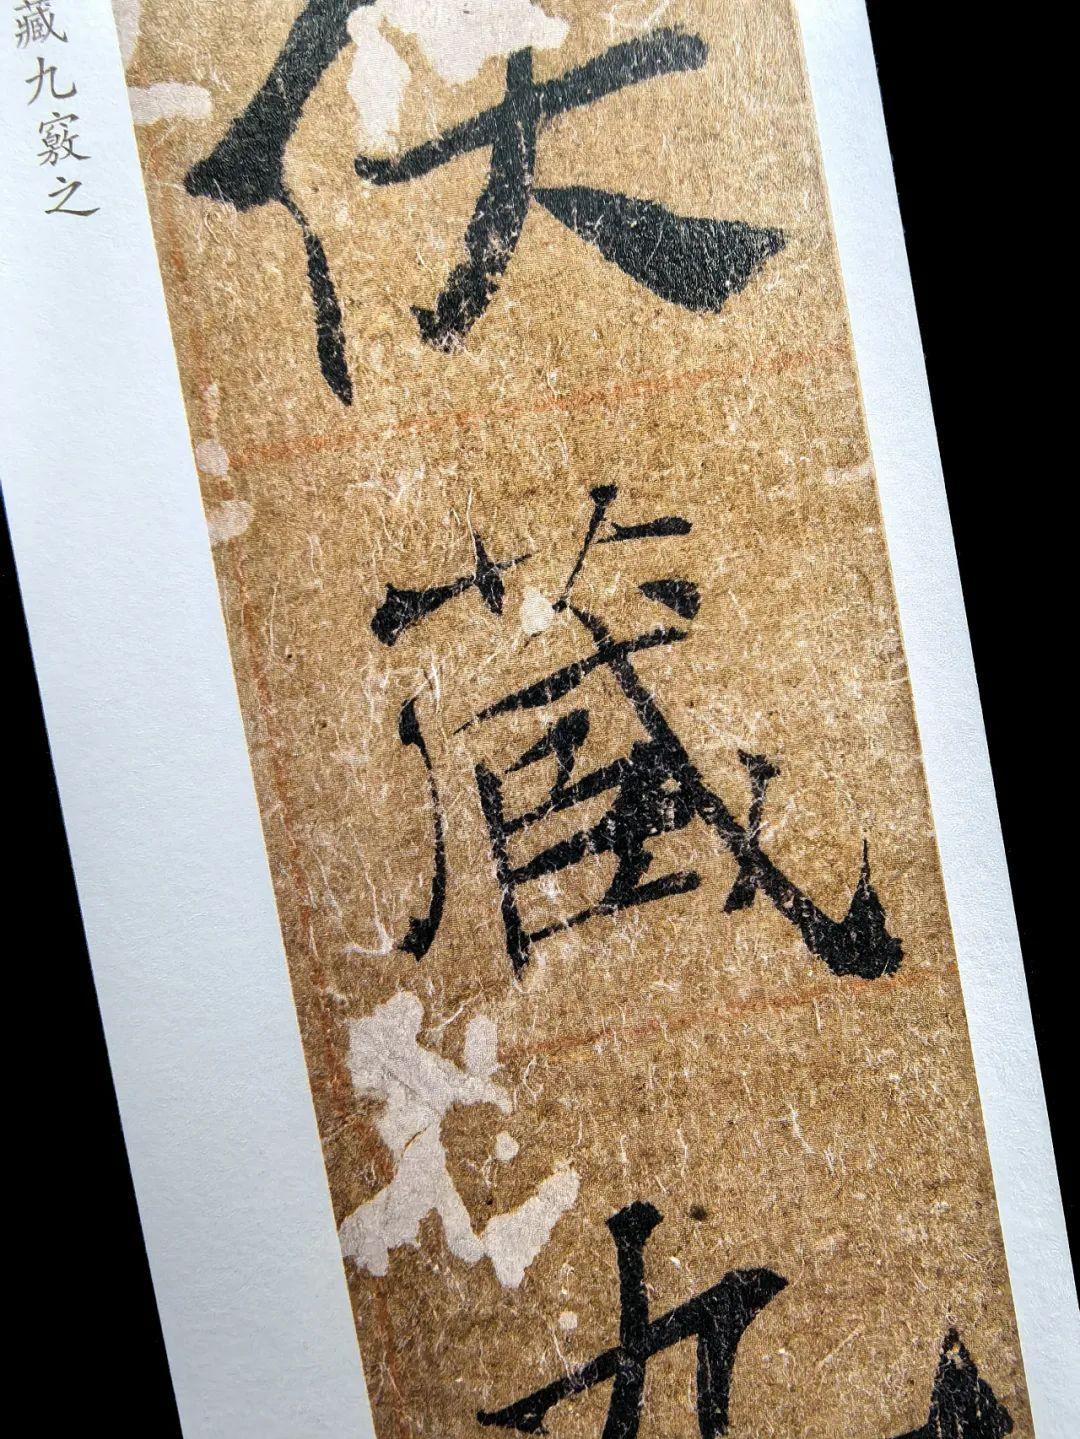 伏藏九
藏九竅之